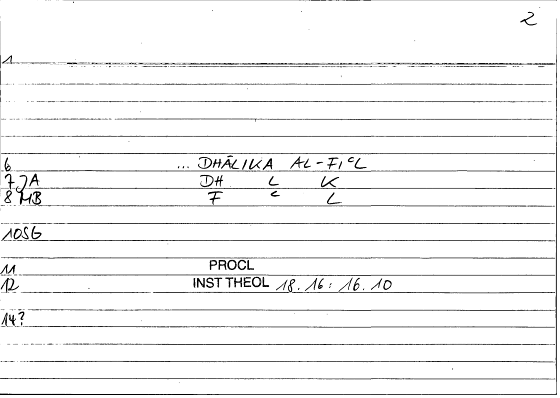 2
1
6 ... DHĀLIKA AL-FIᶜL
7 JA DH L K
8 MB F ᶜ L
10SG
11 PROCL
12 INST THEOL 18.16 : 16.10
14?